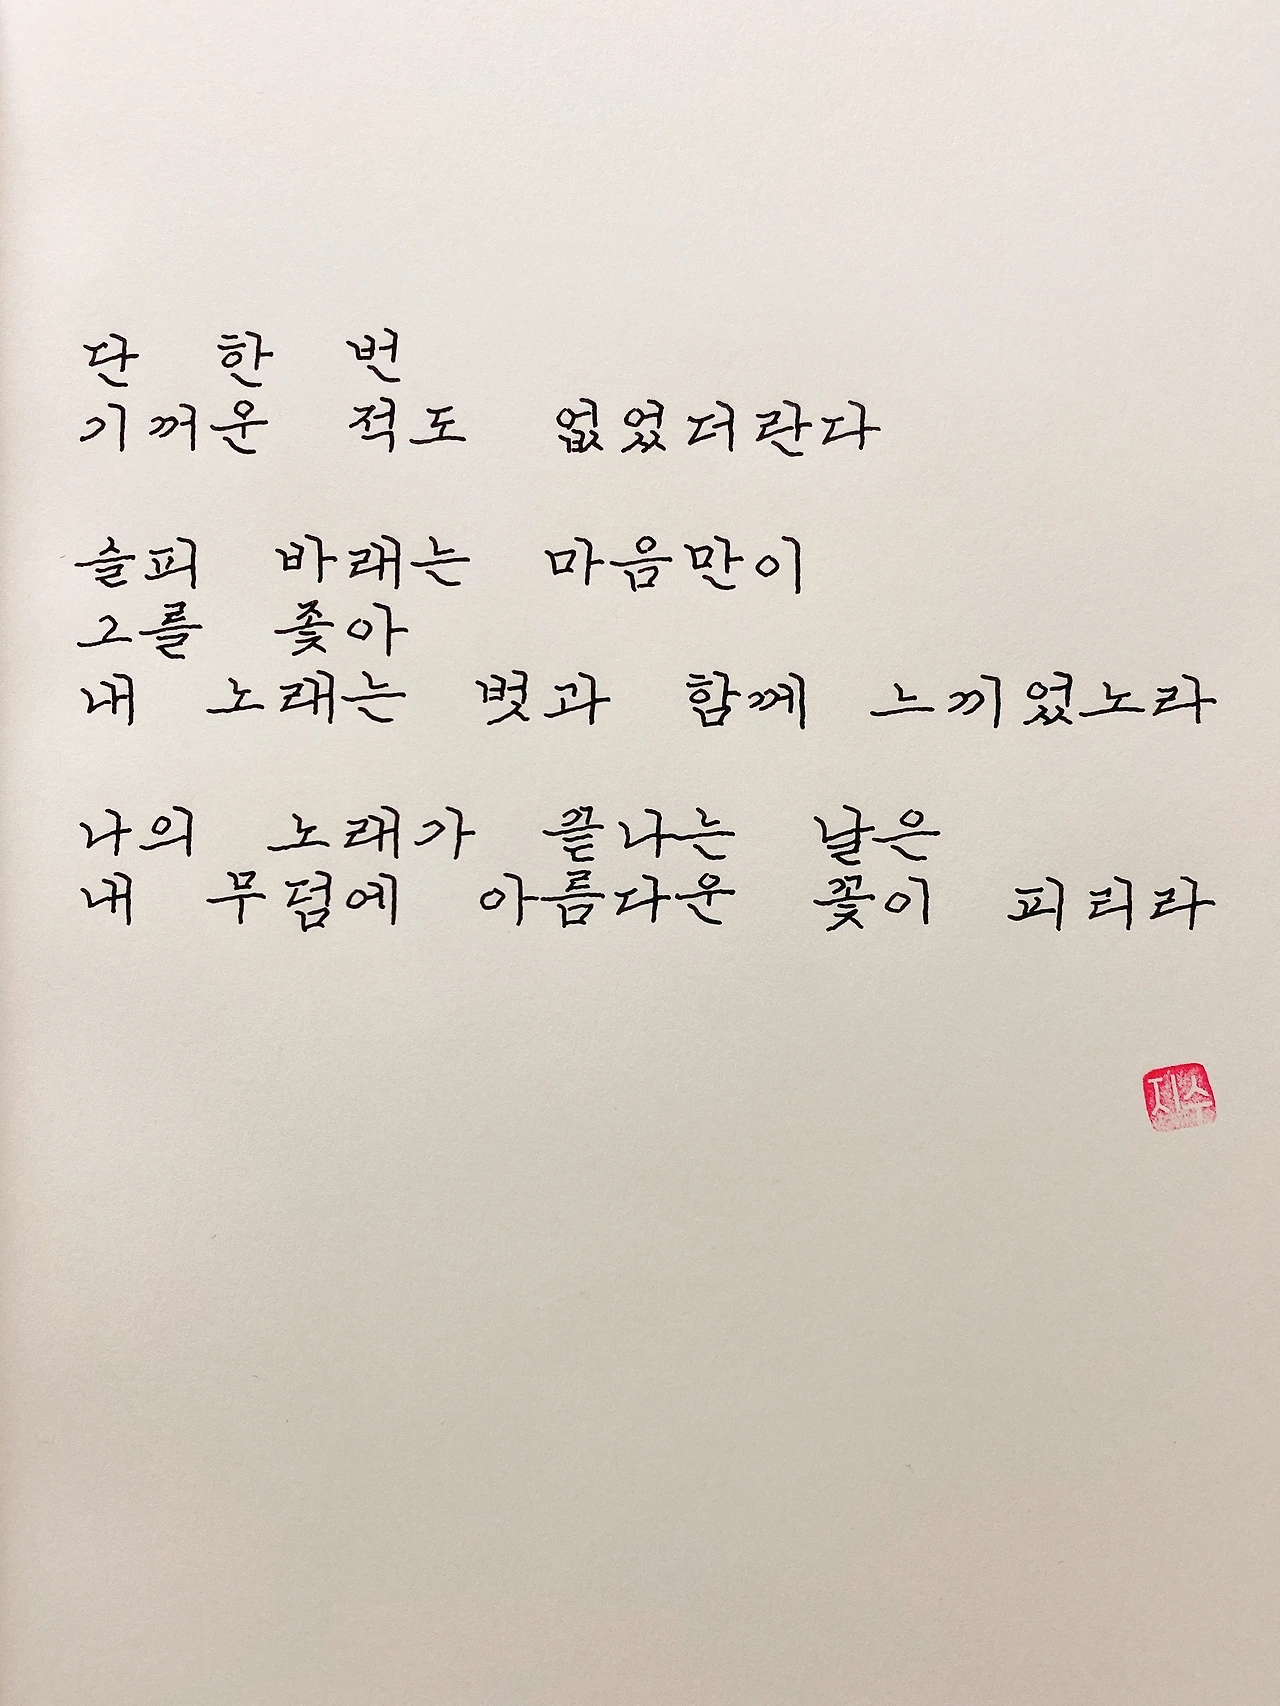 단 한 번
기꺼운 적도 없었더란다
슬피 바래는 마음만이
그를 좇아
내 노래는 벗과 함께 느끼었노라
나의 노래가 끝나는 날은
내 무덤에 아름다운 꽃이 피리라
지수